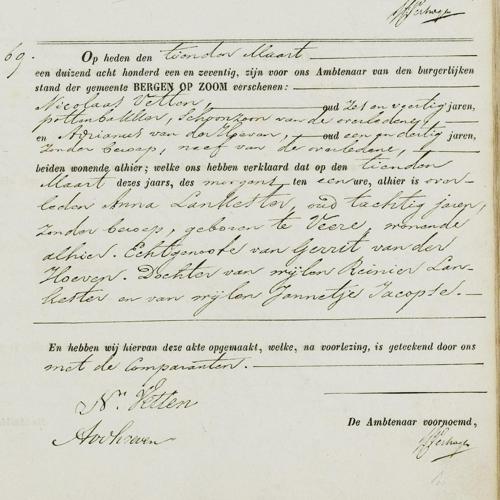 69.
Op heden den tienden Maart
een duizend acht honderd een en zeventig, zijn voor ons Ambtenaar van den burgerlijken
stand der gemeente BERGEN OP ZOOM verschenen:
Nicolaas Vetten, oud zes en veertig jaren,
pottenbakker, Schoonzoon van de overledene
en Adrianus van der Hoeven, oud een en dertig jaren,
Zonder beroep, neef van de overledene,
beiden wonende alhier; welke ons hebben verklaard dat op den tienden
Maart dezes jaars, des morgens ten een ure, alhier is over-
leden Anna Lankester, oud tachtig jaren,
zonder beroep, geboren te Veere, wonende
alhier. Echtgenoote van Gerrit van der
Hoeven. Dochter van wijlen Reinier Lan-
kester en van wijlen Jannetje Jacopse.
En hebben wij hiervan deze akte opgemaakt, welke, na voorlezing, is geteekend door ons
met de Comparanten.
Ns. Vetten
Avdhoeven
De Ambtenaar voornoemd,